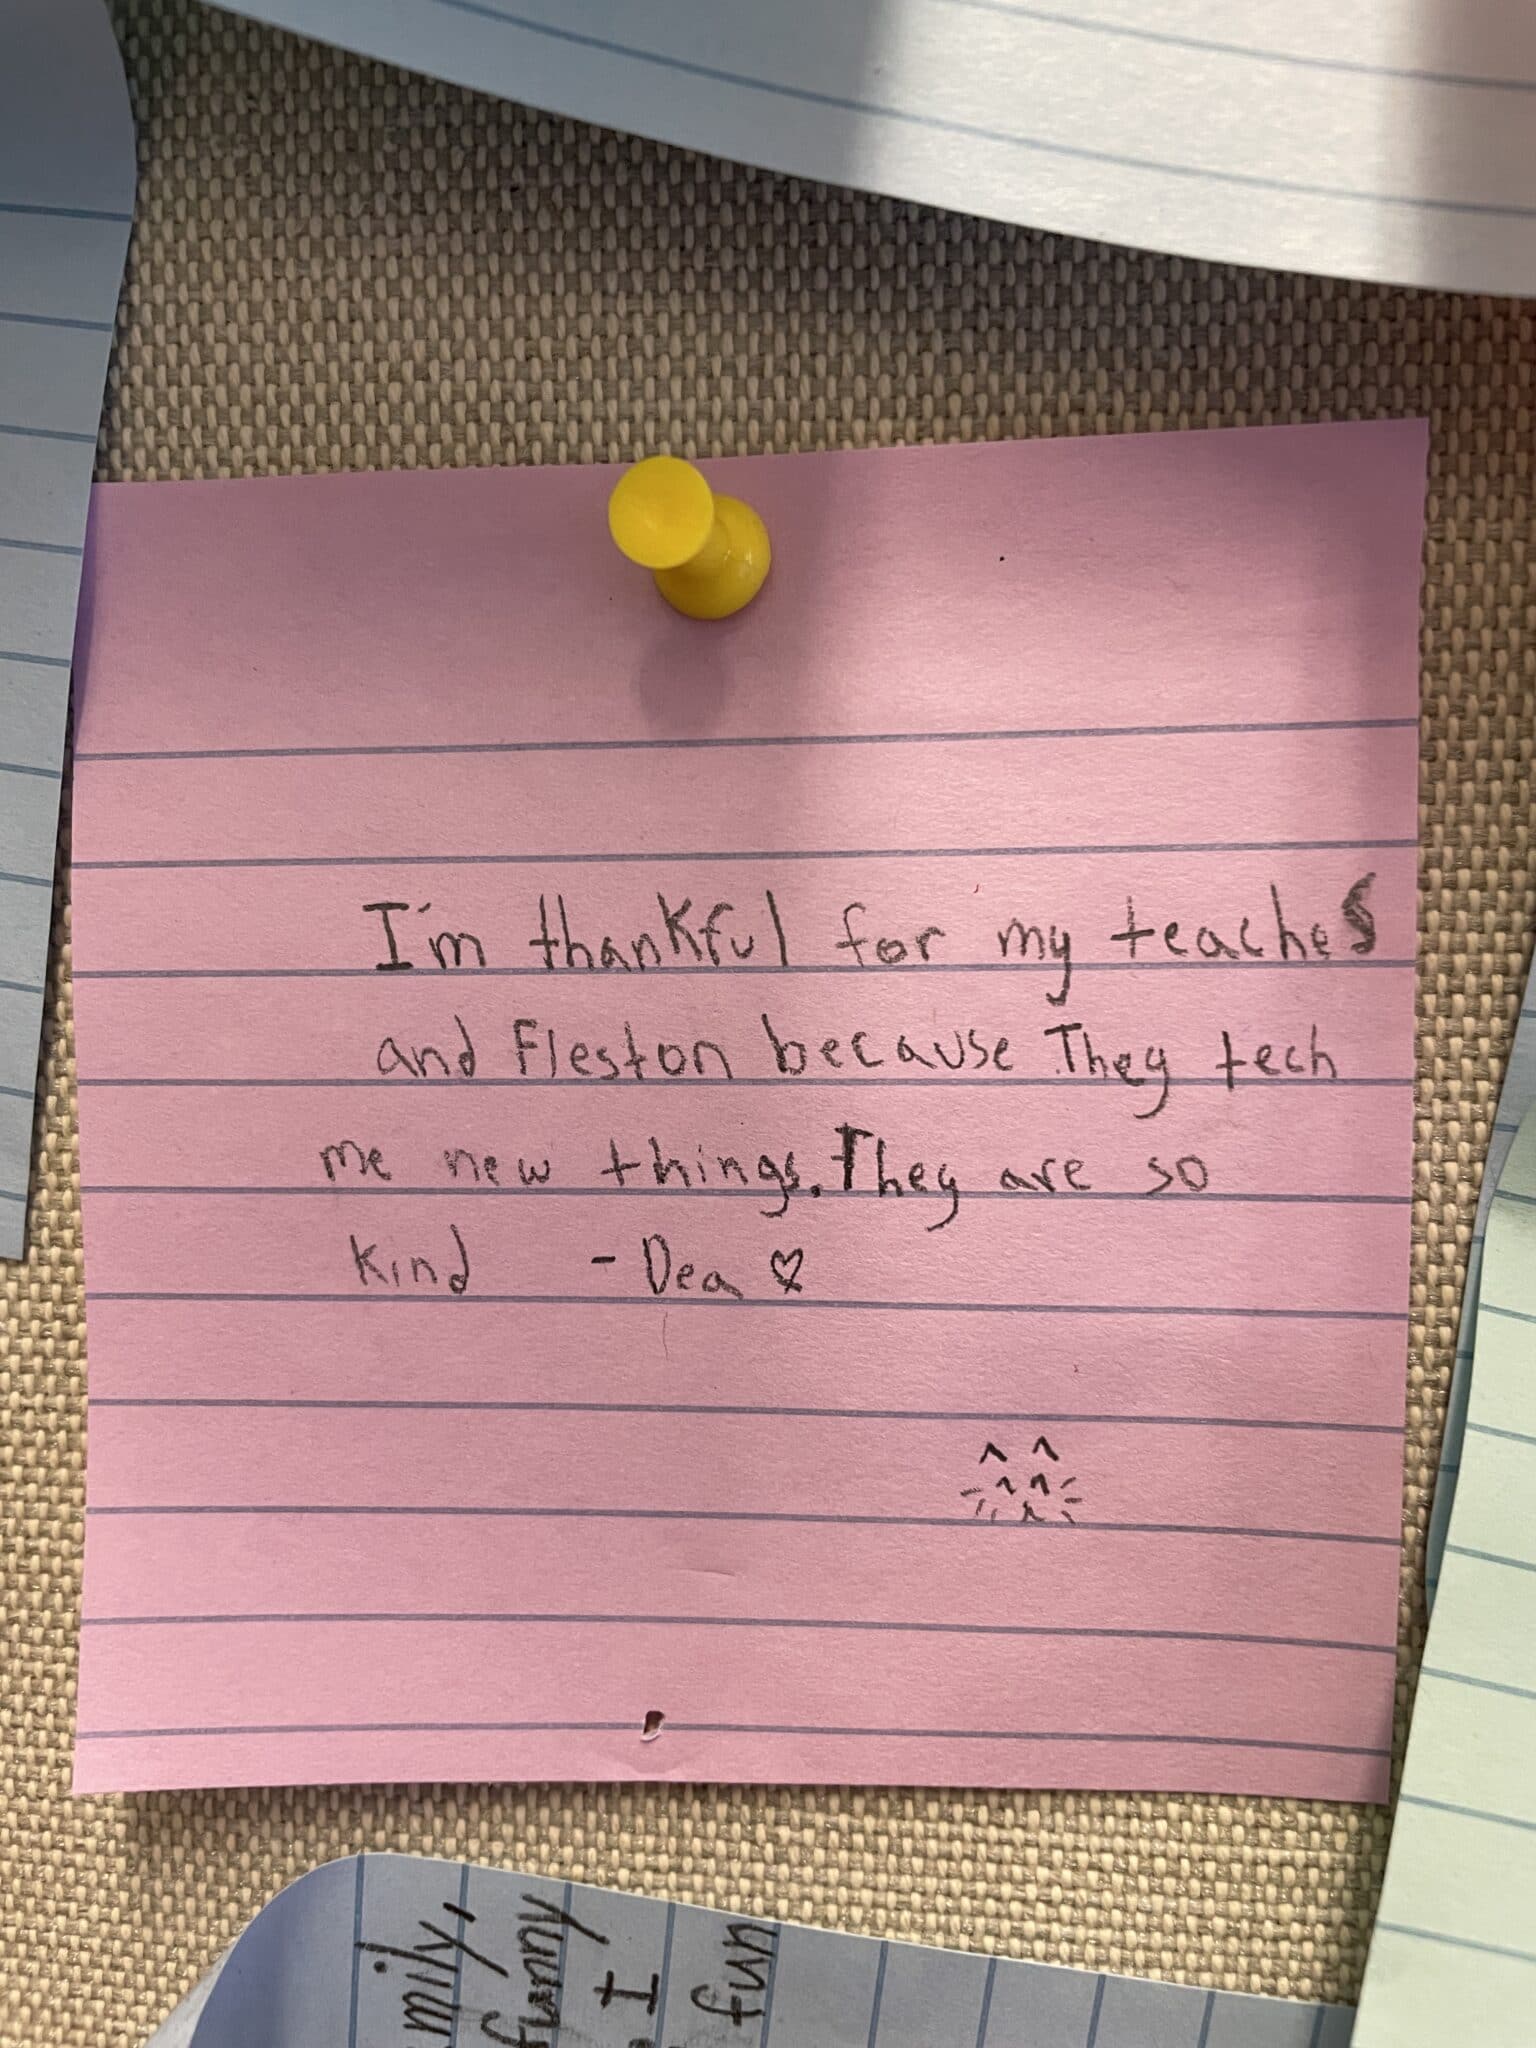 I'm thankful for my teaches
and Fleston because They tech
me new things. They are so
kind - Dea ♡
mily,
funny
I
fun